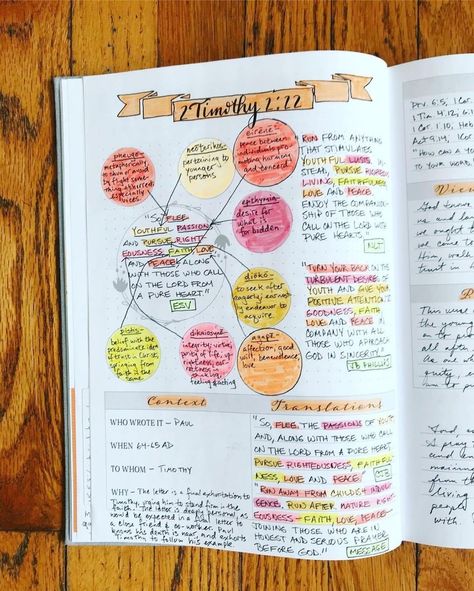 2 Timothy 2:22
pheugo-
metaphorically
to shun or avoid
by flight some-
thing abhorred,
especially
vices
neoterikos-
pertaining to
younger
persons
eirene-
peace between
individuals pro-
moting harmony
and concord
epithymia-
desire for
what is
forbidden
"So FLEE
YOUTHFUL PASSIONS
AND PURSUE RIGHT-
EOUSNESS, FAITH, LOVE
AND PEACE ALONG
WITH THOSE WHO CALL
ON THE LORD FROM
A PURE HEART."
ESV
dioko-
to seek after
eagerly, earnestly
endeavor to
acquire
pistis-
belief with the
predominate idea
of trust in Christ,
springing from
faith in the
same
dikaiosune-
integrity, virtue,
purity of life,
rightness,
thinking,
feeling, acting
agape-
affection, good
will, benevolence,
love
RUN FROM ANYTHING
THAT STIMULATES
YOUTHFUL LUSTS. IN-
STEAD, PURSUE RIGHTEOUS
LIVING, FAITHFULNESS,
LOVE AND PEACE.
ENJOY THE COMPANION-
SHIP OF THOSE WHO
CALL ON THE LORD WITH
PURE HEARTS.
NLT
"TURN YOUR BACK ON THE
TURBULENT DESIRES OF
YOUTH AND GIVE YOUR
POSITIVE ATTENTION TO
GOODNESS, FAITH,
LOVE AND PEACE IN
COMPANY WITH ALL
THOSE WHO APPROACH
GOD IN SINCERITY."
JB PHILLIPS
Context
WHO WROTE IT – PAUL
WHEN 64-65 AD
TO WHOM – TIMOTHY
WHY – The letter is a final exhortation to
Timothy, urging him to stand firm in the
faith. The letter is deeply personal, as
would be expected in a final letter to
a close friend & co-worker. Paul
knows his death is near, and exhorts
Timothy to follow his example.
Translations
"SO, FLEE THE PASSIONS OF YOUTH
AND, ALONG WITH THOSE WHO CALL
ON THE LORD FROM A PURE HEART,
PURSUE RIGHTEOUSNESS, FAITHFUL-
NESS, LOVE AND PEACE."
CJB
"RUN AWAY FROM CHILDISH INDUL-
GENCE. RUN AFTER MATURE RIGHT-
EOUSNESS – FAITH, LOVE, PEACE –
JOINING THOSE WHO ARE IN
HONEST AND SERIOUS PRAYER
BEFORE GOD."
MESSAGE
Prv. 6:5, 1 Cor
1 Tim 4:12, 6:11
1 Cor 1:10, Heb
Acts 9:14, 1 Cor
"How can a yo
to your word